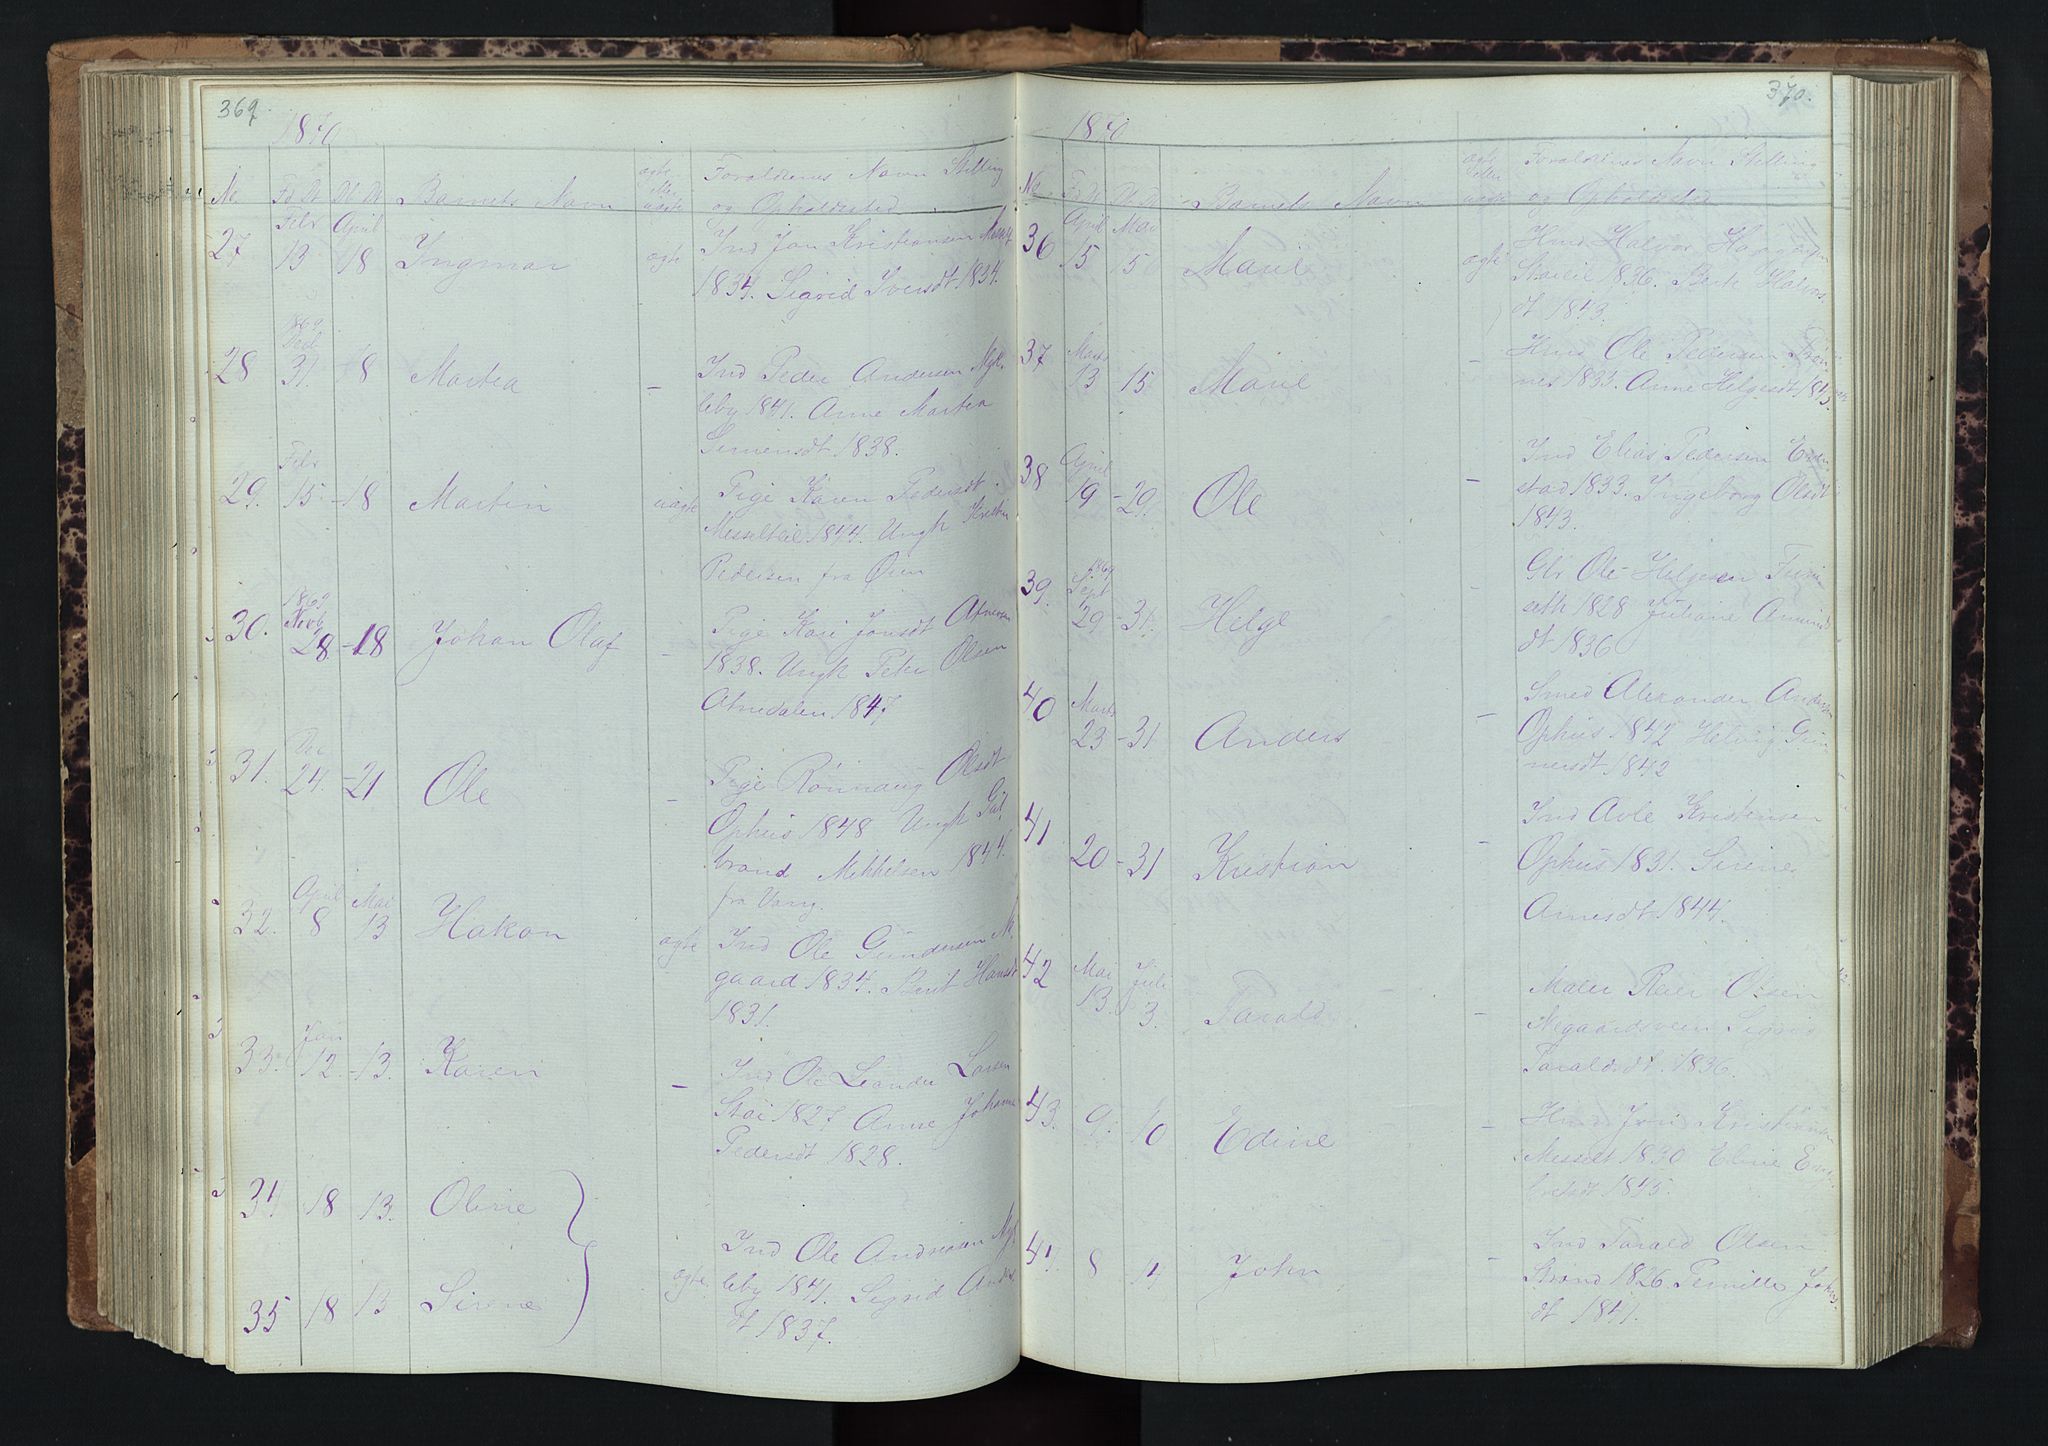 369.
1870
No. Fd Dt Dt Dt Barnets Navn ægte eller uægte Forældrenes Navn Stilling og Opholdssted
27 Febr 13 April 18 Ingmar ægte Ind Jon Kristiansen
1834. Sigrid Iversdt 1834.
28 1869 Decb 31. 18 Martea – Ind Peder Andersen Myk-
leby 1841. Anne Martea
Simensdt 1838.
29. Febr 15 – 18 Martin uægte Pige Karen Pedersdt.
Messelteie 1844. Ungk Kristen
Pedersen fra Øien
30. 1869 Novb 28 – 18 Johan Olaf – Pige Kari Jonsdt
1838. Ungk Peter Olsen
Atnedalen 1847
31. Dec 24. – 21 Ole – Pige Rønnaug Olsdt
Ophus 1848 Ungk Gul-
brand Mikkelsen 1844.
fra Vang.
32. April 8 Mai 13 Hakon ægte Ind Ole Gundersen N.
gaard 1834. Berit Hansdt
1831.
33. Jan 12 – 13. Karen – Ind Ole Leander Larsen
Stai 1827. Anne Johanne
Pedersdt 1828.
34 18 13. Oline
35 18 13 Sirene ægte. Ind Ole Andreasen Myk
leby 1841. Sigrid Anders
dt 1837.
370.
1870
No Fd Dt Dt Dt Barnets Navn ægte eller uægte Forældrenes Navn Stilling og Opholdssted
36 April 15 Mai 15 Marie ægte Hmd Halvor
Staieie 1836. Berte Halvors
dt 1843.
37 Marts 13 15 Marie – Hmd Ole Pedersen
nes 1833. Anne Helgesdt 1843.
38 April 19 – 29. Ole – Ind Elias Pedersen
stad 1833. Ingeborg Olsdt
1843.
39. 1869 Sept 29 – 31. Helge – Gbr Ole Helgesen Furu
seth 1828 Juliane Amund
dt 1836
40 Marts 23 – 31 Anders – Smed Alexander Andersen
Ophus 1842 Helvig Gun
nersdt 1842
41 20 – 31 Kristian – Ind Avle Kristensen
Ophus 1831. Sirene
Arnesdt 1844.
42 Mai 13. Juli 3. Tarald – Maler Reier Olsen
Negaardsveen Sigrid
Taraldsdt. 1836.
43. 9. 10 Edine – Hmd Jon Kristiansen
Messelt 1830 Eline Eng
bretsdt 1845.
44. 8 14 John – Ind Tarald Olsen
Strand 1826 Pernille Johns
dt 1841.